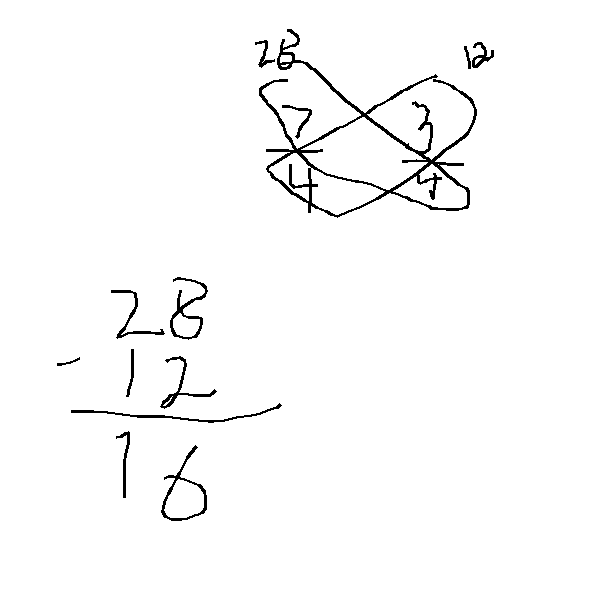 28 12
7 3
4 4
28
- 12
16